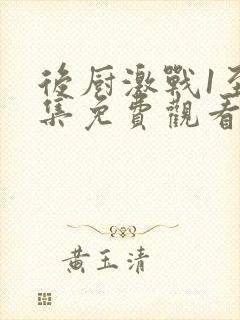 後厨激戰1至
集免費觀看
黃玉清